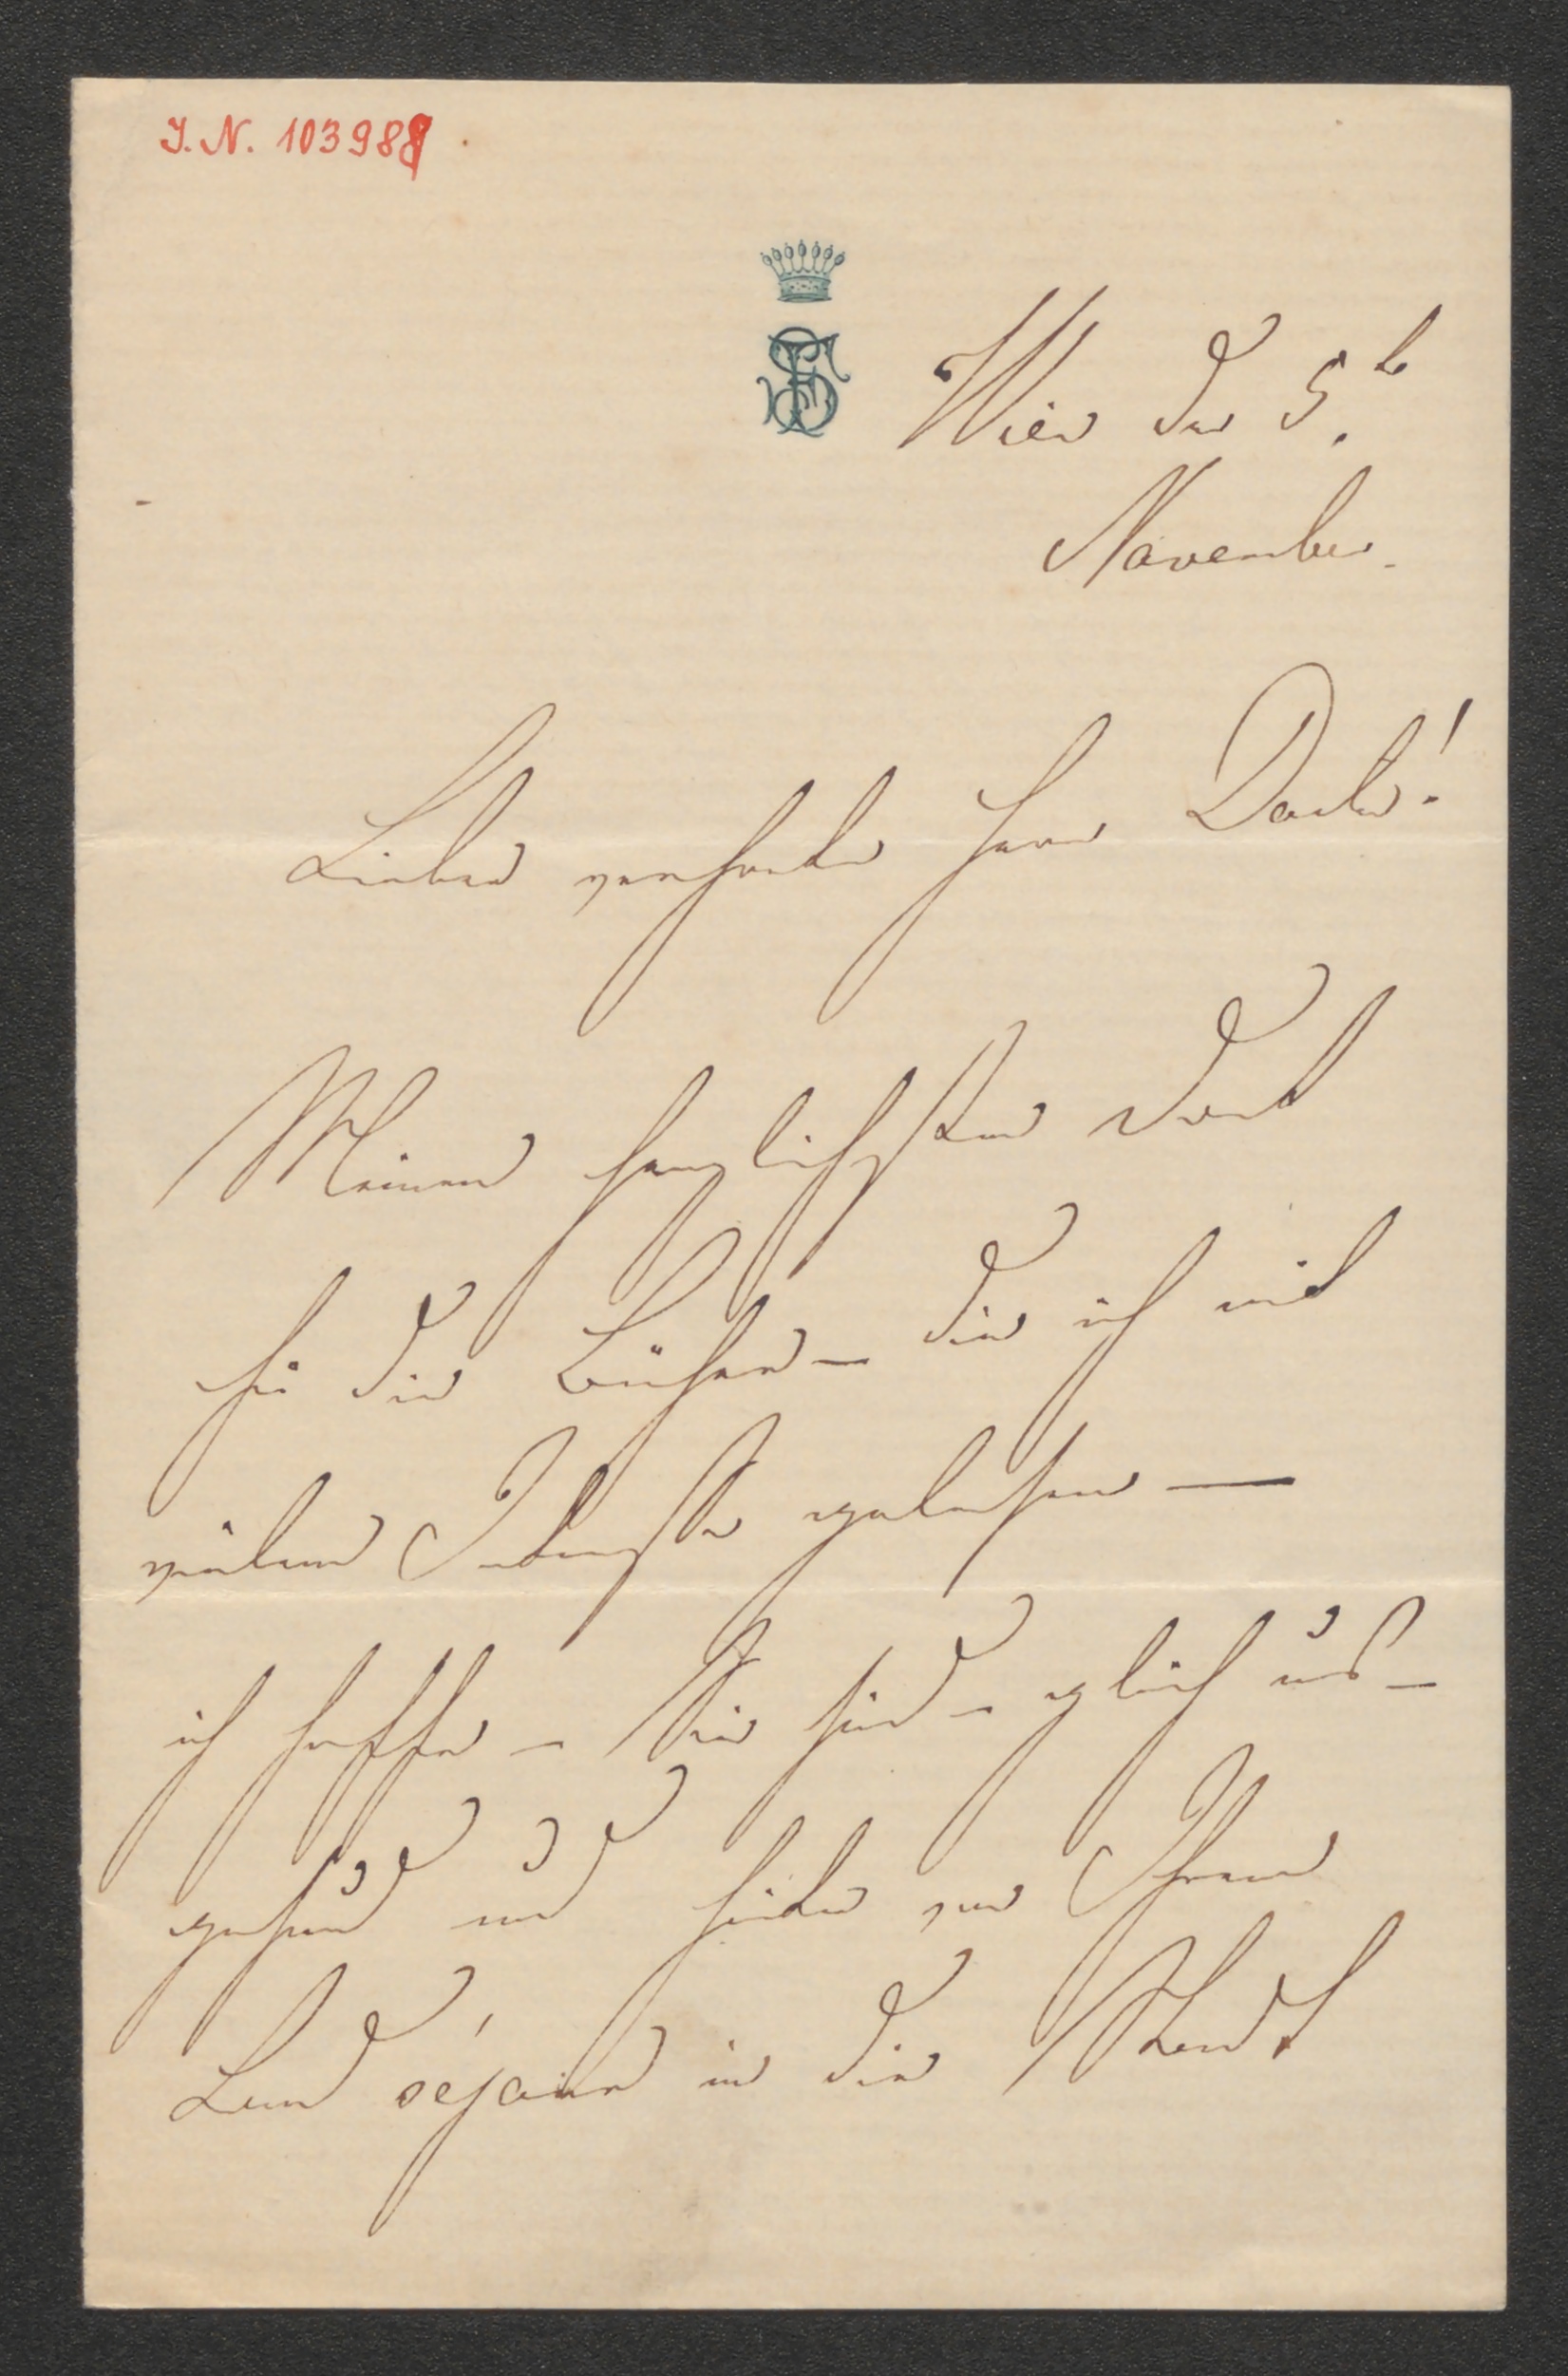 J.N. 103988
Wien den 5.te
November.
Lieber verehrter Herr Doctor!
Meinen herzlichsten Dank
für die Bücher – die ich mit
vielem Interesse gelesen —
ich hoffe – Sie sind – gleich uns –
gesund und hinter von Ihrem
Land séjour in die Stadt